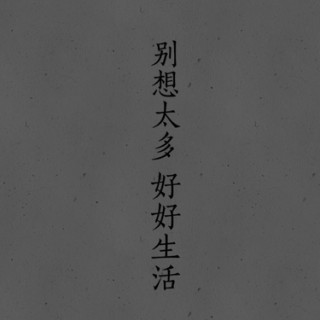 别想太多 好好生活